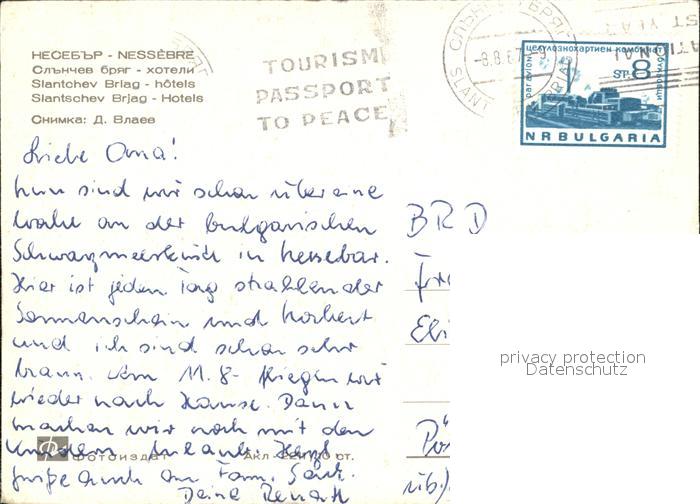 НЕСЕБЪР - NESSÈBRE
Слънчев бряг - хотели
Slantchev Briag - hôtels
Slantschev Brjag - Hotels
Снимка: Д. Влаев
TOURISM
PASSPORT
TO PEACE
СЛЪНЧЕВ БРЯГ
-8.8.67-9
SLANT BRIAG
целулознохартиен комбинат
par avion
8
ST.
NR BULGARIA
Liebe Oma!
Nun sind wir schon über eine
Woche an der bulgarischen
Schwarzmeerküste in Nessebar.
Hier ist jeden Tag strahlender
Sonnenschein und Norbert
und ich sind schon sehr
braun. Am 11.8. fliegen wir
wieder nach Hause. Dann
machen wir noch mit den
Kindern Urlaub.
Grüße auch an Fam.
Deine Renate
BRD
Eli
privacy protection
Datenschutz
Фотоиздат